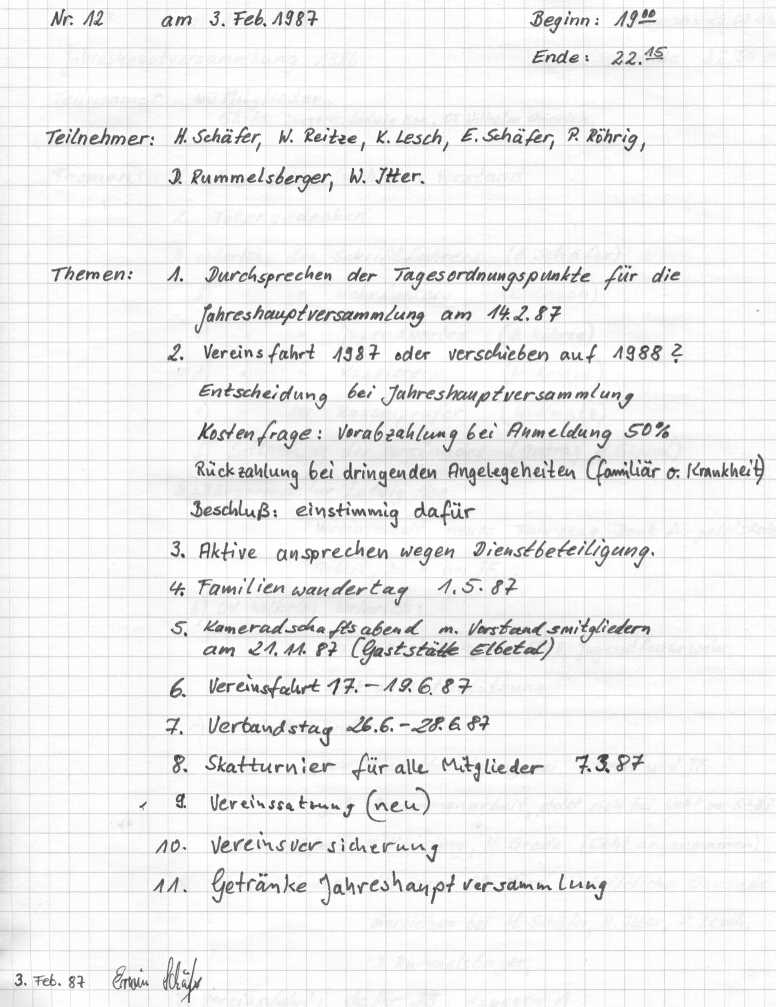 Nr. 12 am 3. Feb. 1987 Beginn: 19⁰⁰
Ende: 22.¹⁵
Teilnehmer: H. Schäfer, W. Reitze, K. Lesch, E. Schäfer, P. Röhrig,
D. Rummelsberger, W. Itter.
Themen: 1. Durchsprechen der Tagesordnungspunkte für die
Jahreshauptversammlung am 14.2.87
2. Vereinsfahrt 1987 oder verschieben auf 1988?
Entscheidung bei Jahreshauptversammlung
Kostenfrage: Vorabzahlung bei Anmeldung 50%
Rückzahlung bei dringenden Angelegeheiten (familiär o. Krankheit)
Beschluß: einstimmig dafür
3. Aktive ansprechen wegen Dienstbeteiligung.
4. Familienwandertag 1.5.87
5. Kameradschaftsabend m. Vorstandsmitgliedern
am 21.11.87 (Gaststätte Elbetal)
6. Vereinsfahrt 17.-19.6.87
7. Verbandstag 26.6.-28.6.87
8. Skatturnier für alle Mitglieder 7.3.87
9. Vereinssatzung (neu)
10. Vereinsversicherung
11. Getränke Jahreshauptversammlung
3. Feb. 87 Erwin Schäfer